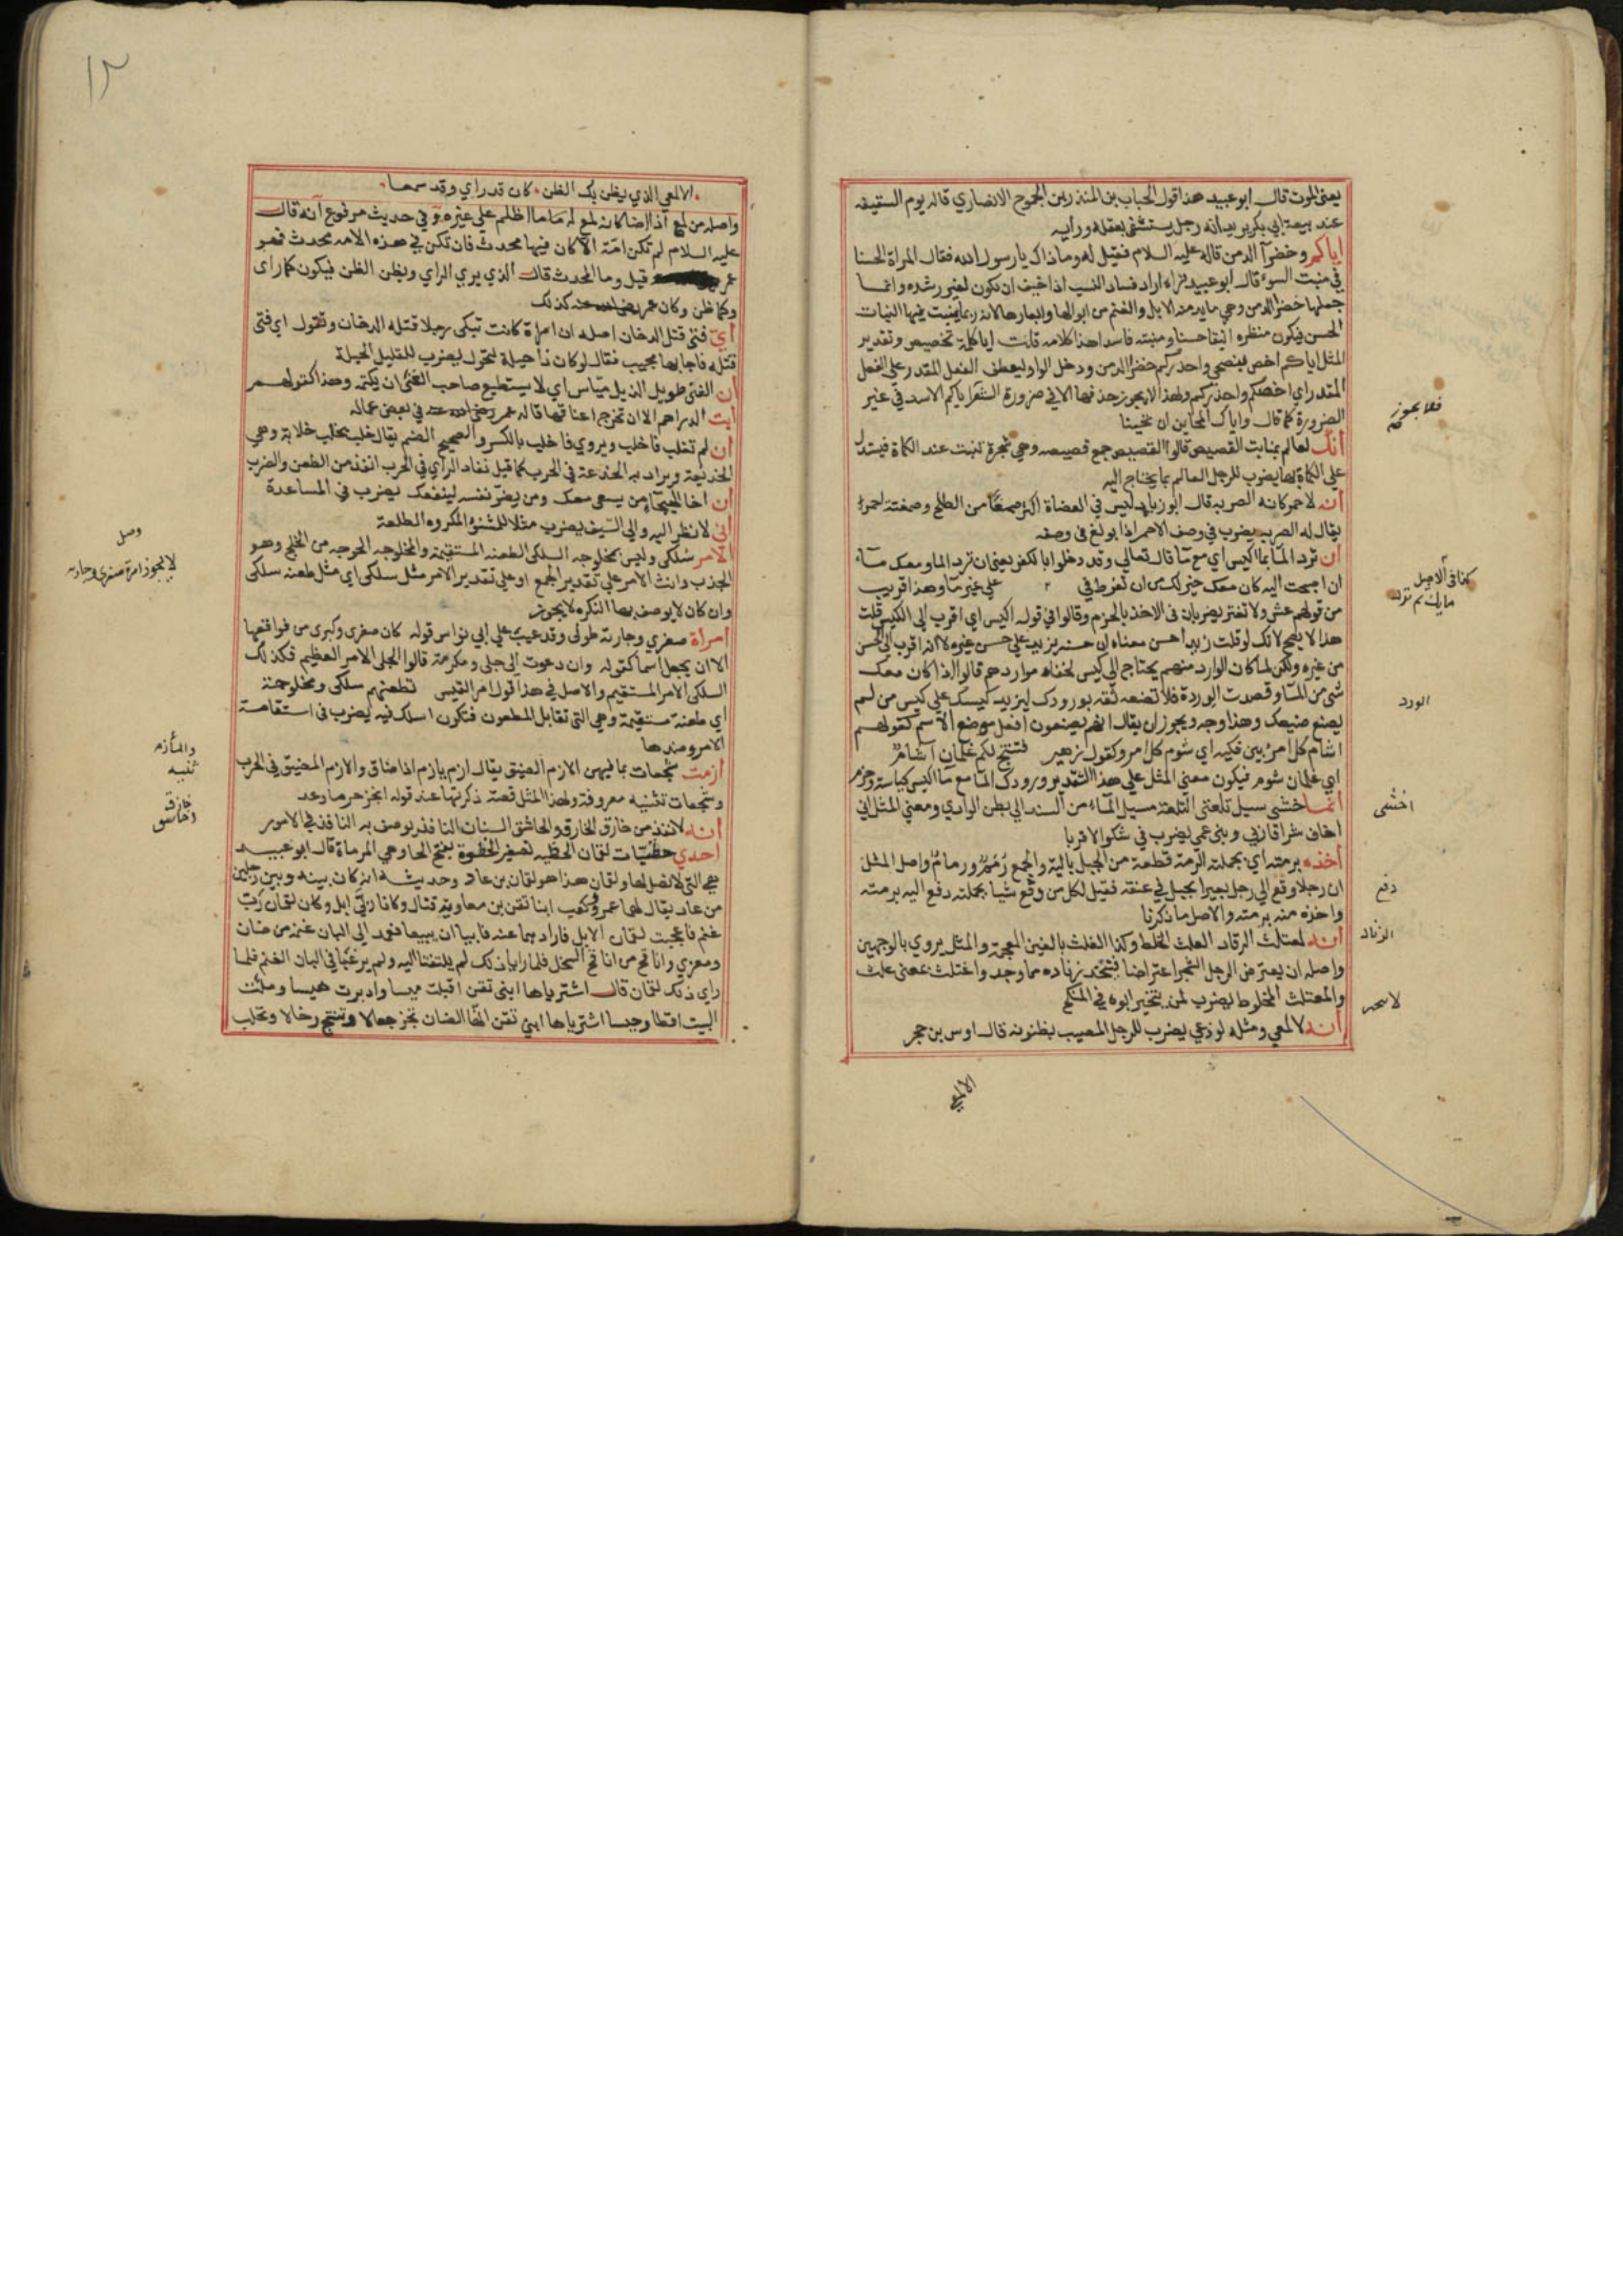 يعني الموت قال ابو عبيد هذا قول الحباب بن المنذر بن الجموح الانصاري قاله يوم السقيفه
عند بيعة ابي بكر يريد انه رجل يستشفى بعقله ورايه
اياكم وخضرآ الدمن قاله عليه السلام فقيل له وما ذاك يا رسول الله فقال المراة الحسنا
في منبت السوء قال ابو عبيد نراه اراد فساد النسب اذا خيف ان تكون لغير رشده وانما
جعلها خضرا الدمن وهي ما يدمنه الابل والغنم من ابوالها وابعارها لانه ربما ينبت فيها النبات
الحسن فيكون منظره انيقا حسنا ومنبته فاسدا هذا كلامه قلت ايا كلمة تخصيص وتقدير
المثل اياكم اخص بنصحي واحذركم خضرا الدمن ودخل الواو ليعطف الفعل المقدر على الفعل
المقدر اي اخصكم واحذركم ولهذا لا يجوز حذفها الا في ضرورة الشعر اياكم الاسد في غير
الضرورة كما قال واياك المحاين ان تحينا
فلا يجوز
انك لعالم بمنابت القصيص قالوا القصيص جمع قصيصه وهي شجرة تنبت عند الكماة فيستدل
على الكماة بها يضرب للرجل العالم بما يحتاج اليه
انه لاحمر كانه الصربه قال ابو زياد ليس في العضاة اكثر صمغا من الطلح وصمغته احمر
يقال له الصربه يضرب في وصف الاحمر اذا بولغ في وصفه
ان ترد المآ بمآ اكيس اي مع مآ قال تعالى وقد دخلوا بالكفر يعني ان ترد الما ومعك مآء
ان احتجت اليه كان معك خير لك من ان تفرط في على غير ما وهذا قريب
كذا في الاصل
من قولهم عش ولا تغتر يضربان في الاخذ بالحزم وقالوا في قوله اكيس اي اقرب الى الكيس قلت
هذا لا يصح لانك لو قلت زيد احسن معناه ان حسنه يزيد على حسن غيره لا انه اقرب الى الحسن
من غيره ولكن لما كان الوارد منهم يحتاج الى كيس لخفاء موارد هم قالوا اذا كان معك
شي من المآ وقصدت الوردة فلا تضعه ثقه بورودك ليزيد كيسك على كيس من لم
الورد
يصنع صنيعك وهذا وجه ويجوز ان يقال انهم يضعون افعل موضع الاسم كقولهم
اشام كل امرئ بين فكيه اي شوم كل امر وكقول زهير فتنتج لكم غلمان اشام
اي غلمان شوم فيكون معنى المثل على هذا التقدير ورودك المآ مع مآ اكيس كياسة وحزم
انما خشى سيل تلعتي التلعة مسيل المآء من السند الى بطن الوادي ومعنى المثل اني
اخشى
اخاف شر اقاربي وبني عمي يضرب في شكوى الاقربا
اخذه برمته اي بجملته الرمه قطعة من الحبل باليه والجمع رمم ورمام واصل المثل
ان رجلا وقع الى رجل بعيرا بحبل في عنقه فقيل لكل من وقع شيا بجملته دفع اليه برمته
دفع
واخذه منه برمته والاصل ما ذكرنا
انه لمعتلث الرقاد العلث الخلط وكذا الغلث بالغين المعجمة والمثل يروي بالوجهين
الزناد
واصله ان يعترض الرجل الشجر اعتراضا فيتخذ زناده مما وجد واغتلث بمعنى علث
والمعتلث المخلوط يضرب لمن لم يتخير ابوه في المنكح
انه لالمعي ومثله لوذعي يضرب للرجل المصيب بظنونه قال اوس بن حجر
الالمعي
١٢
الالمعي الذي يظن بك الظن كان قد راي وقد سمعا
واصله من لمع اذا اضا كانه لمع له ما ما اظلم على غيره وفي حديث مرفوع انه قال
عليه السلام لم تكن امة الا كان فيها محدث فان تكن في هذه الامه محدث فهو
عمر قيل وما المحدث قال الذي يري الراي ويظن الظن فيكون كما راى
وكما ظن وكان عمر رضي الله عنه كذلك
اي فتى قتل الدخان اصله ان امراة كانت تبكى رجلا قتله الدخان وتقول اي فتى
قتله فاجابها مجيب فقال لو كان ذا حيلة لتحول يضرب للقليل الحيلة
ان الفتى طويل الذيل مياس اي لا يستطيع صاحب الغنى ان يكتمه وهذا كقولهم
ابت الدراهم الا ان تخرج اعناقها قاله عمر رضي الله عنه في بعض عماله
ان لم تغلب فاخلب ويروي فاخلب بالكسر والصحيح الضم يقال خلب يخلب خلابة وهي
الخديعة ويراد به الخدعة في الحرب كما قيل نفاد الراي في الحرب انفذ من الطعن والضرب
ان اخا الهيجآء من يسعى معك ومن يضر نفسه لينفعك يضرب في المساعدة
اني لانظر اليه والى السيف يضرب مثلا للمشنؤ المكروه الطلعة
الامر سلكى وليس بمخلوجه السلكى الطعنه المستقيمة والمخلوجه المعوجه من الخلج وهو
الجذب وانث الامر على تقدير الجمع او على تقدير الامر مثل سلكى اي مثل طعنه سلكى
وان كان لا يوصف بها النكره لا يجوز
امراة صغري وجارية طولى وقد عيب على ابي نواس قوله كان صغرى وكبرى من فواقعها
الا ان يجعل اسما كقوله وان دعوت الى جلى ومكرمة قالوا الجلى الامر العظيم فكذلك
السلكى الامر المستقيم والاصل في هذا قول امر القيس نطعنهم سلكى ومخلوجة
اي طعنة مستقيمة وهي التي تقابل المطعون فتكون اسلك فيه يضرب في استقامة
الامر وضدها
ازمت شجعات بما فيهن الازم الضيق يقال ازم يازم اذا ضاق والازم المضيق في الحرب
والمأزم
وشجعات ثنيه معروفة ولهذا المثل قصة ذكرتها عند قوله انجز حر ما وعد
ثنيه
انه لانفذ من خازق الخازق والخاسق السنان النافذ يوصف به النافذ في الامور
خازق
وخاسق
احدي حظيات لقمان الحظيه تصغير الحظوة بفتح الحا وهي المرماة قال ابو عبيد
هي التي لا نصل لها ولقمان هذا هو لقمان بن عاد وحديثه انه كان بينه وبين رجلين
من عاد يقال لهما عمرو وكعب ابنا تقن بن معاوية قتال وكانا ربي ابل وكان لقمان رب
غنم فاعجبت لقمان الابل فاراد هما عنه فابيا ان يبيعا فعمد الى البان غنمه من ضان
ومعزي وانافح من انافح السخل فلما رايا ذلك لم يلتفتا اليه ولم يرغبا في البان الغنم فلما
راي ذلك لقمان قال اشترياها ابني تقن اقبلت ميسا وادبرت هيسا وملأت
البيت اقطا وحيسا اشترياها ابني تقن انها الضان تجز جفالا وتنتج رخالا وتحلب